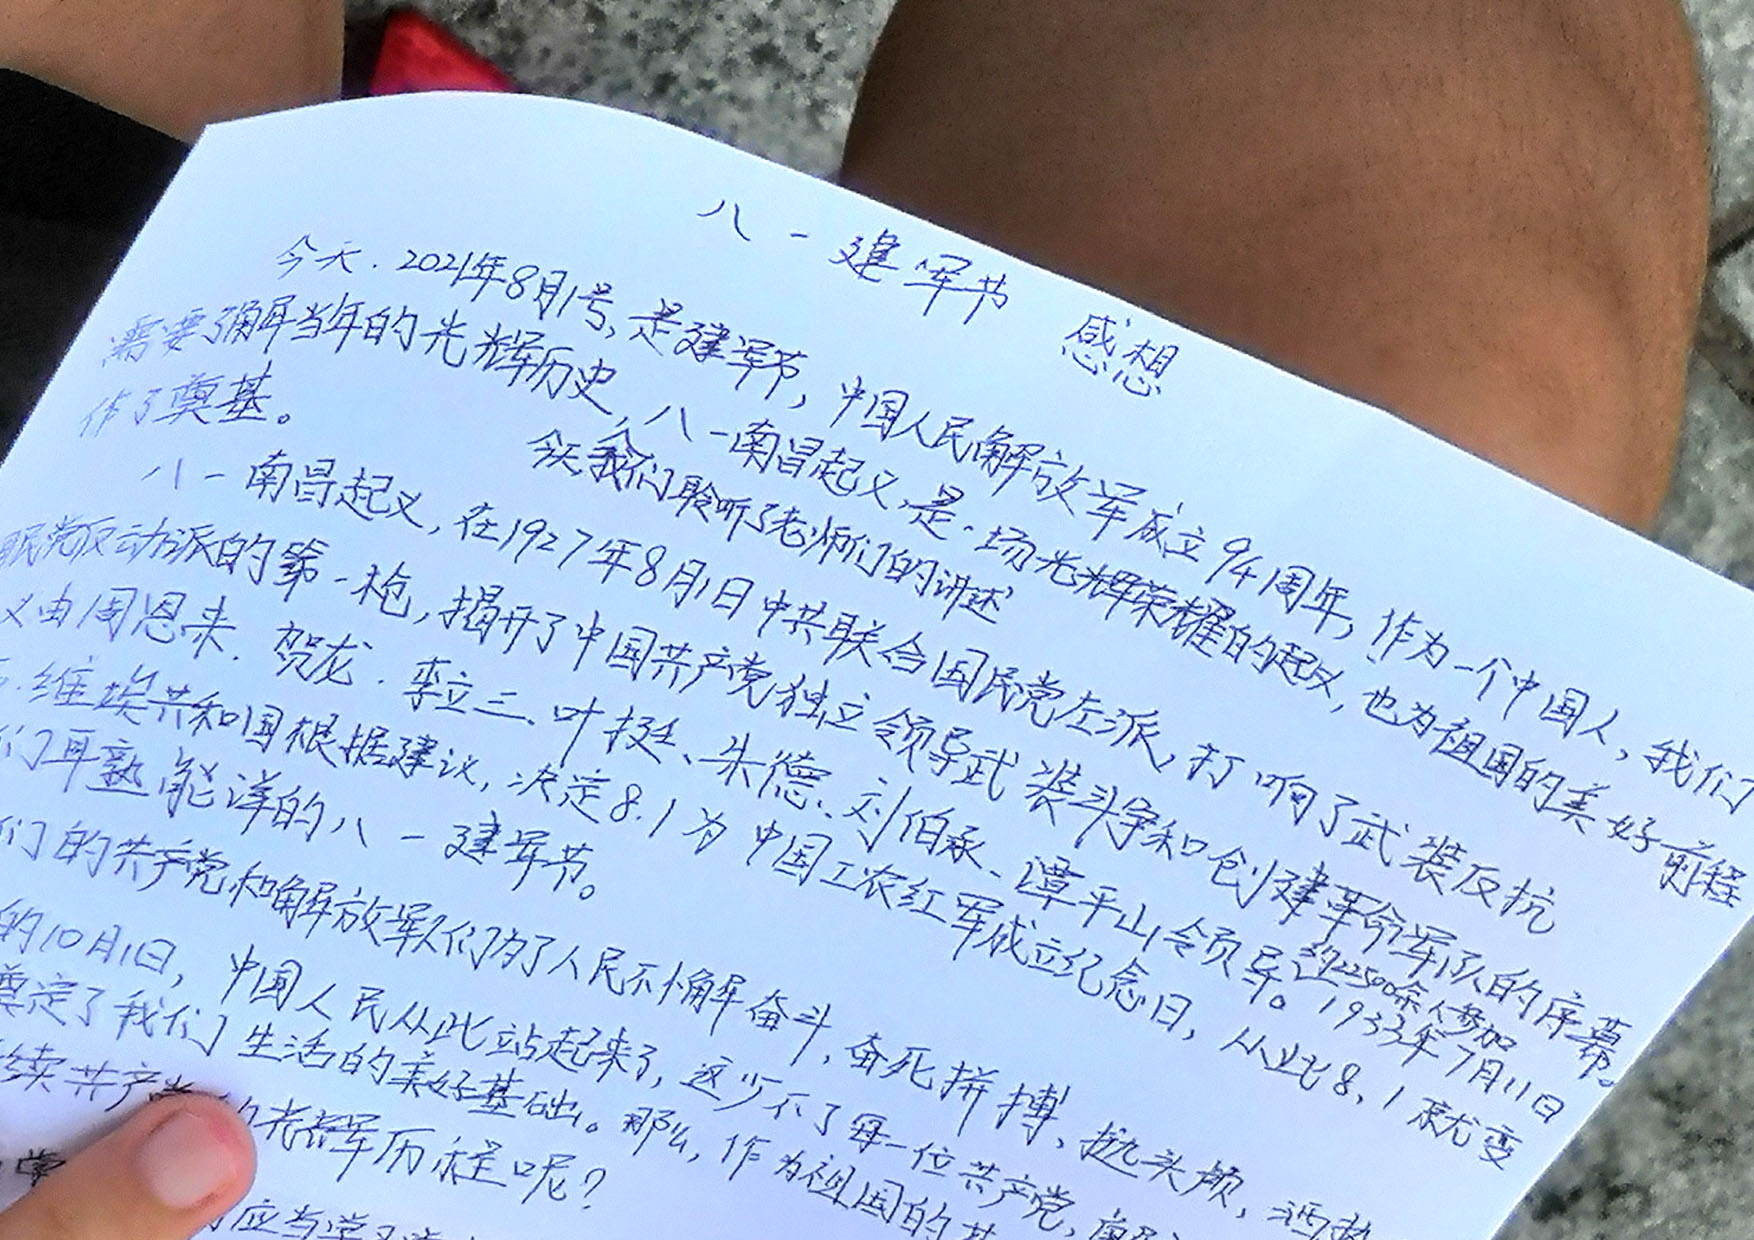 八一建军节 感想
今天.2021年8月1号,是建军节,中国人民解放军成立94周年,作为一个中国人,我们
需要了解当年的光辉历史,八一南昌起义,是一场光辉荣耀的起义,也为祖国的美好前程
作了奠基。
今天我们聆听了老师们的讲述
八一南昌起义,在1927年8月1日中共联合国民党左派,打响了武装反抗
民党反动派的第一枪,揭开了中国共产党独立领导武装斗争和创建革命军队的序幕。
义由周恩来.贺龙.李立三、叶挺、朱德、刘伯承、谭平山领导。1933年7月11日
约22500余人参加
维埃共和国根据建议,决定8.1为中国工农红军成立纪念日,从此8.1就变
们耳熟能详的八一建军节。
们的共产党和解放军们为了人民不懈奋斗,奋死拼搏、抛头颅,洒热
的10月1日,中国人民从此站起来了,这少不了每一位共产党,解
奠定了我们生活的美好基础。那么,作为祖国的
续共产党的光辉历程呢?
应当学习